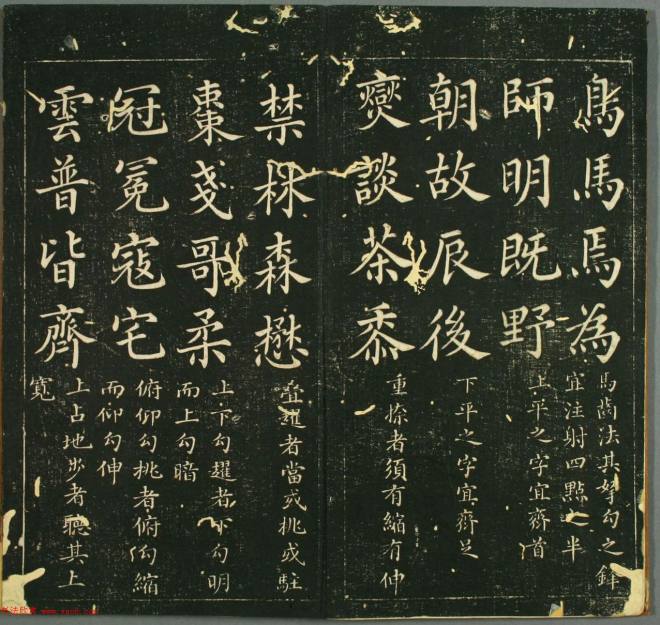 鳥馬焉為
馬齒法其拏勾之鋒
宜注射四點之半
師明既野
上平之字宜齊首
朝故辰後
下平之字宜齊足
爕談茶黍
重捺者須有縮有伸
禁林森懋
叠趯者當或挑或駐
棗戔哥柔
上下勾趯者下勾明
而上勾暗
冠冕寇宅
俯仰勾挑者俯勾縮
而仰勾伸
雲普皆齊
上占地步者聽其上
寬